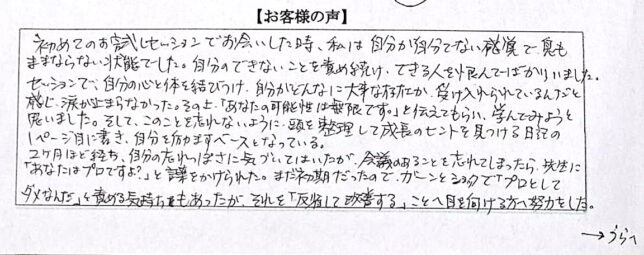 【お客様の声】
初めてのお試しセッションでお会いした時、私は自分が自分でない感覚で息も
ままならない状態でした。自分のできないことを責め続け、できる人を恨んでばかりいました。
セッションで、自分の心と体を結びつけ、自分がどんなに大事な存在か、受け入れられているんだと
感じ、涙が止まらなかった。その上、「あなたの可能性は無限です。」と伝えてもらい、学んでみようと
思いました。そして、このことを忘れないように、頭を整理して成長のヒントを見つける日記の
1ページ目に書き、自分を励ますベースとなっている。
2ケ月ほど経ち、自分の忘れっぽさに気づいてはいたが、会議のあることを忘れてしまったら、先生に
「あなたはプロですよ?」と言葉をかけられた。まだ初期だったので、ガーンとショックで「プロとして
ダメなんだ」と責める気持ちもあったが、それを「反省して改善する」ことへ目を向ける方へ努力をした。
→うらへ